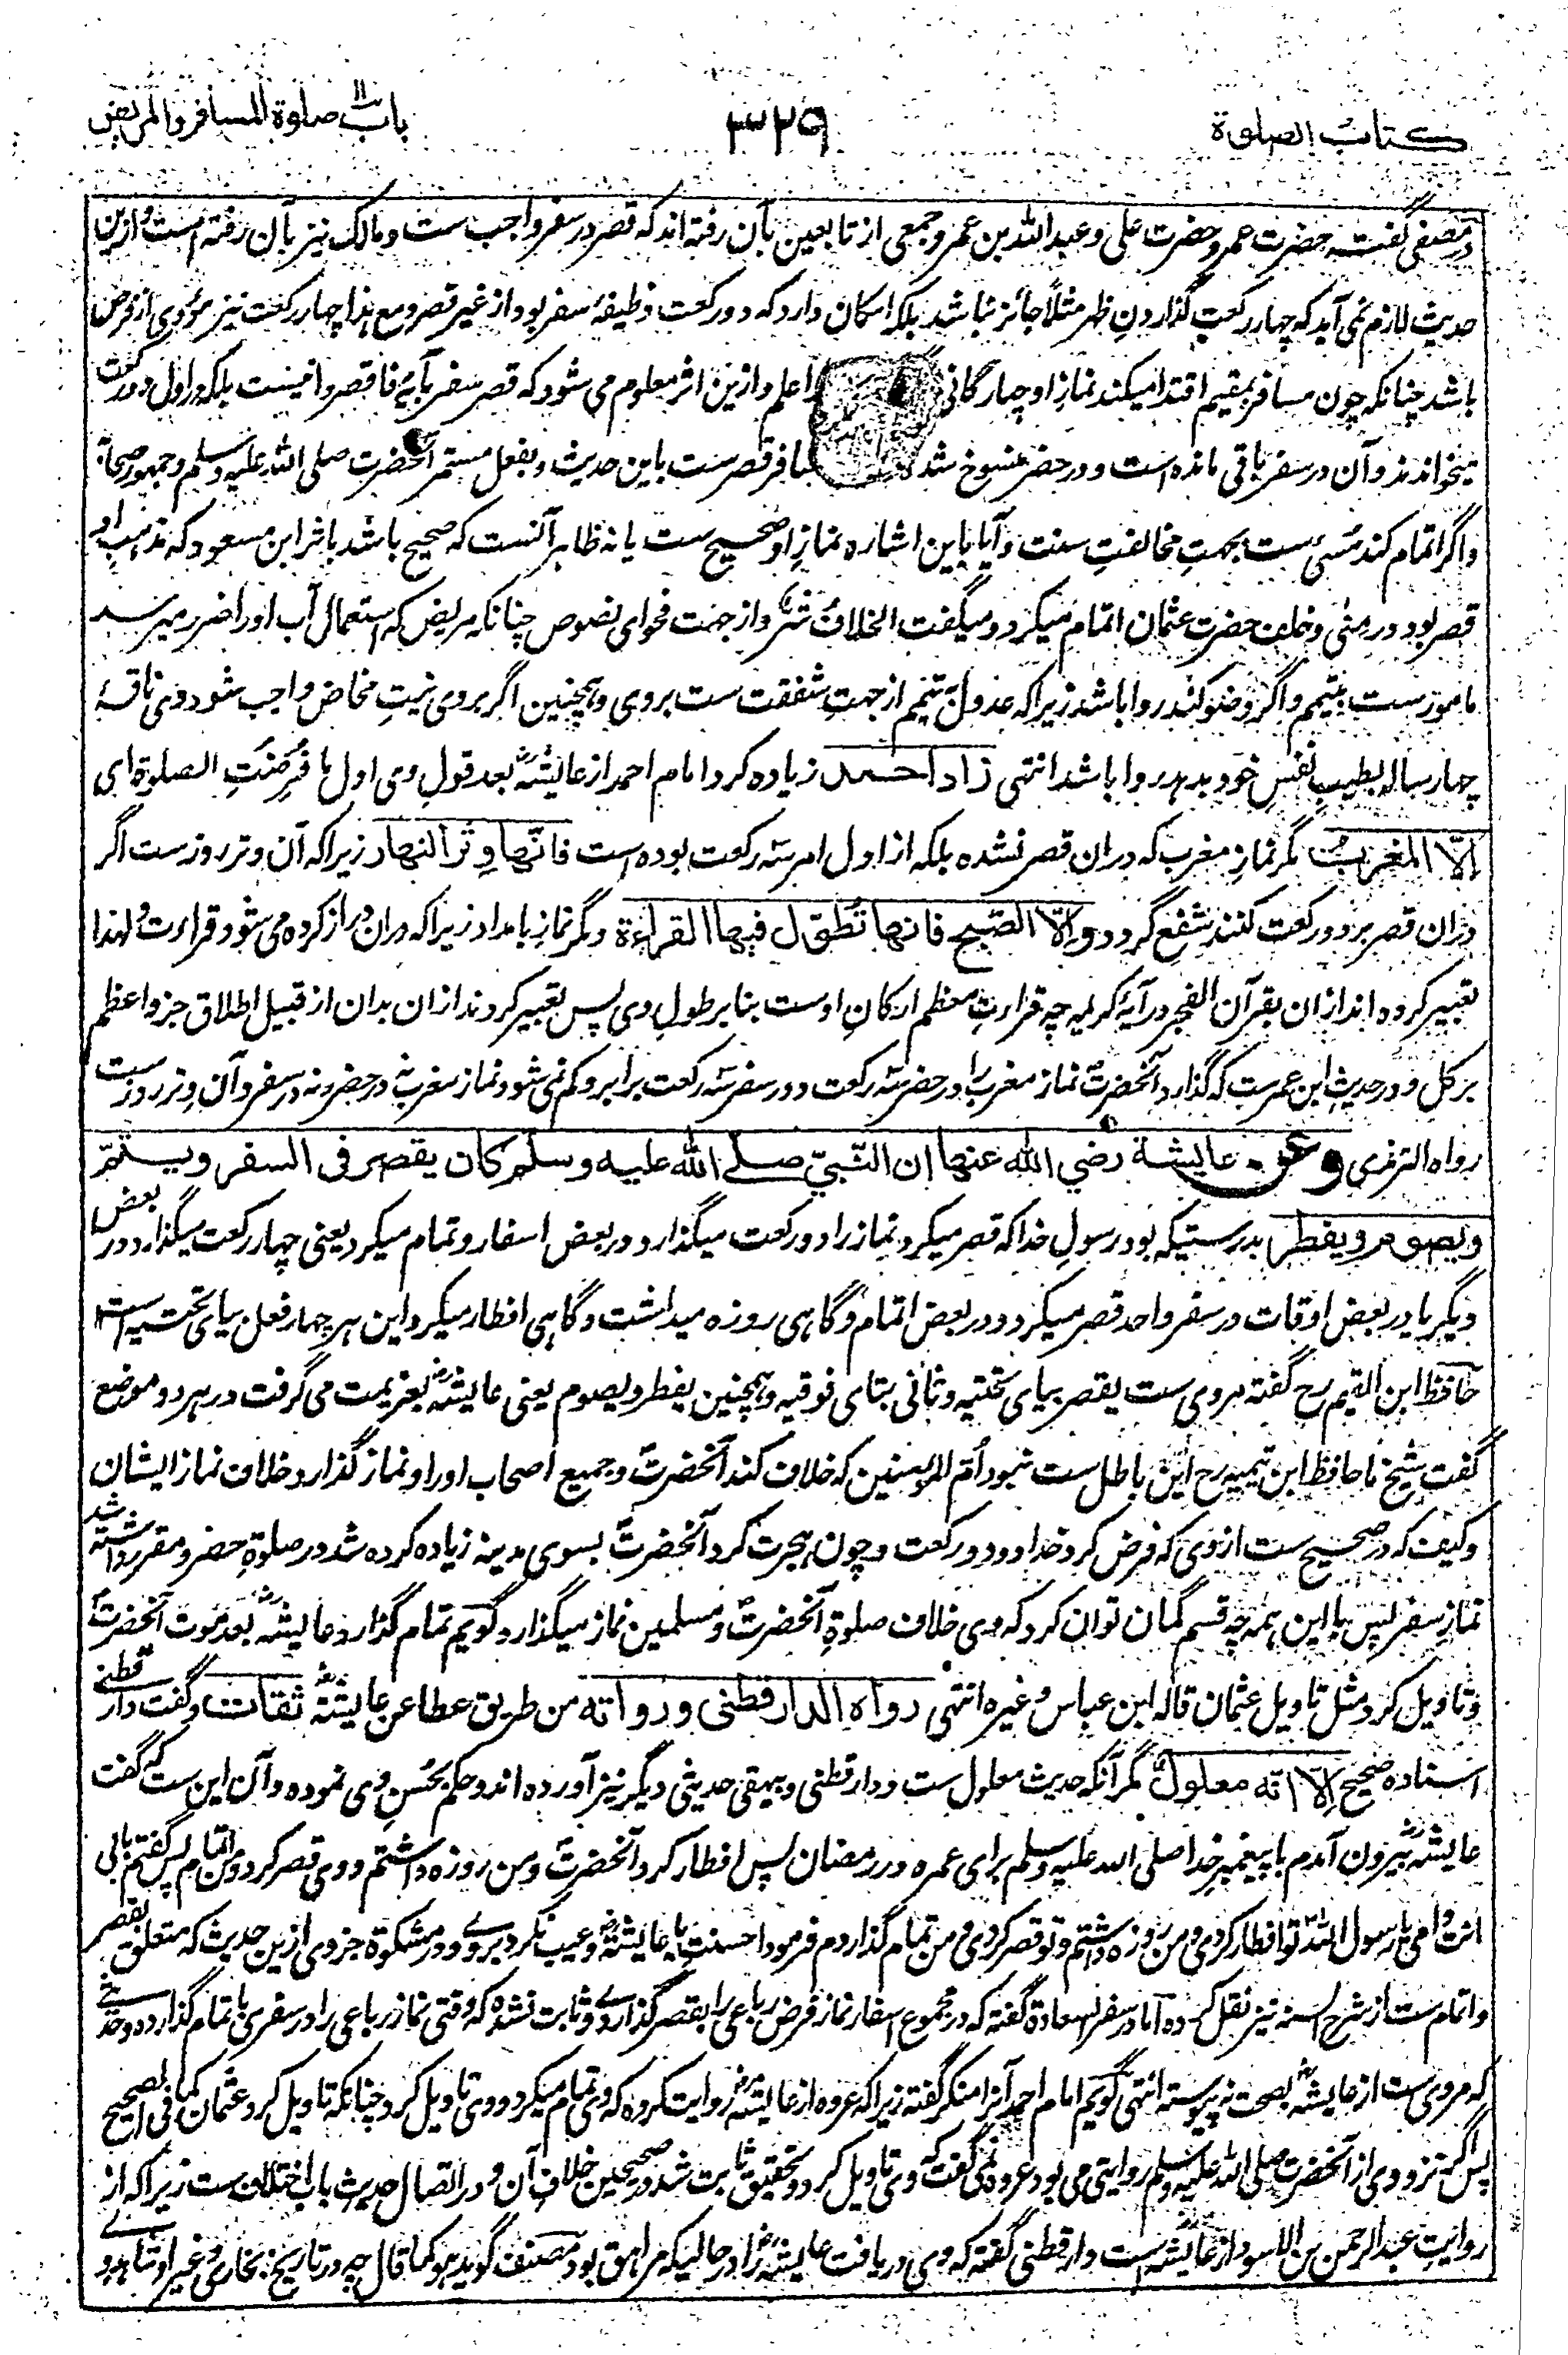 کتاب الصلوة
۳۲۹
باب صلوة المسافر والمریض
در مصفی گفته حضرت عمر و حضرت علی و عبدالله بن عمر و جمعی از تابعین بآن رفته اند که قصر در سفر واجب ست و مالک نیز بآن رفته است و ازین
حدیث لازم نمی آید که چهار رکعت گذاردن ظهر مثلاً جائز نباشد بلکه امکان دارد که دو رکعت وظیفهٔ سفر بود از غیر قصر و مع هذا چهار رکعت نیز مؤدی از فرض
باشد چنانکه چون مسافر بمقیم اقتدا میکند نماز او چهارگانی اعلم و ازین اثر معلوم می شود که قصر سفر بآیۂ فاقصروا نیست بلکه در اول دو رکعت
میخواندند و آن در سفر باقی مانده است و در حضر منسوخ شد مسافر قصرست باین حدیث و بفعل مستمر آنحضرت صلی الله علیه وسلم و جمهور صحابه
و اگر اتمام کند مسیٔ ست بجهت مخالفت سنت و آیا باین اشاره نماز او صحیح ست یا نه ظاهر آنست که صحیح باشد باثر ابن مسعود که مذهب او
قصر بود در منی و خلف حضرت عثمان اتمام میکرد و میگفت الخلاف شر و از جهت فحوای نصوص چنانکه مریض که استعمال آب او را ضرر میرسد
مامورست بتیمم و اگر وضو کند روا باشد زیراکه عدول بتیمم از جهت شفقت ست بروی و همچنین اگر بروی نبت مخاض واجب شود وی ناقهٔ
چهار ساله بطیب نفس خود بدهد روا باشد انتهی زاد احمد زیاده کرد امام احمد از عایشه رض بعد قول وی اول ما فرضت الصلوة ای
الا المغرب مگر نماز مغرب که دران قصر نشده بلکه از اول امر سه رکعت بوده است فانها وتر النهار زیراکه آن وتر روزست اگر
دران قصر برد و رکعت کنند شفع گردد و الا الصبح فانها تطول فیها القراءة و مگر نماز بامداد زیراکه دران دراز کرده می شود قراءت و لهذا
تعبیر کرده اند ازان بقرآن الفجر در آیهٔ کریمه چه قراءت معظم ارکان اوست بنابر طول وی پس تعبیر کردند ازان بدان از قبیل اطلاق جزو اعظم
بر کل و در حدیث ابن عمرست که گذارد آنحضرت نماز مغرب را در حضر سه رکعت و در سفر سه رکعت برابر و کم نمی شود نماز مغرب نه در حضر و نه در سفر و آن وتر روزست
رواه الترمذی وعن عایشة رضی الله عنها ان النبی صلے الله علیه وسلم کان یقصر فی السفر ویتم
ویصوم ویفطر بدرستیکه بود رسول خدا که قصر میکرد نماز را دو رکعت میگذارد در بعض اسفار و تمام میکرد یعنی چهار رکعت میگذارد در بعض
دیگر یا در بعض اوقات در سفر واحد قصر میکرد و در بعض اتمام و گاهی روزه میداشت و گاهی افطار میکرد این هر چهار فعل بیای تحتیه است
حافظ ابن القیم رح گفته مروی ست یقصر بیای تحتیه و ثانی بتای فوقیه و همچنین یفطر و یصوم یعنی عایشه رض بعزیمت می گرفت در هر دو موضع
گفت شیخ ما حافظ ابن تیمیه رح این باطل ست نبود ام المومنین که خلاف کند آنحضرت و جمیع اصحاب او را و نماز گذارد خلاف نماز ایشان
و کیف که در صحیح ست از وی که فرض کرد خدا دو دو رکعت و چون هجرت کرد آنحضرت بسوی مدینه زیاده کرده شد در صلوة حضر و مقرر داشته شد
نماز سفر پس با این همه چه قسم گمان توان کرد که وی خلاف صلوة آنحضرت و مسلمین نماز میگذارد گویم تمام گذارد عایشه رض بعد موت آنحضرت
و تاویل کرد مثل تاویل عثمان قاله ابن عباس و غیره انتهی رواه الدارقطنی ورواته من طریق عطا عن عایشة رض ثقات و گفت دارقطنی
اسناده صحیح الا انه معلول مگر آنکه حدیث معلول ست و دارقطنی و بیهقی حدیثی دیگر نیز آورده اند و حکم بحسن وی نموده و آن این ست که گفت
عایشه رض بیرون آمدم با پیغمبر خدا صلی الله علیه وسلم برای عمره در رمضان پس افطار کرد آنحضرت و من روزه داشتم و وی قصر کرد و من اتمام پس گفتم بابی
انت و امی یا رسول الله تو افطار کردی و من روزه داشتم و تو قصر کردی و من تمام گذاردم فرمود احسنت یا عایشه و عیب نکرد بروے و در مشکوة جزوی ازین حدیث که متعلق بقصر
و اتمام ست از شرح السنه نیز نقل کرده اما در سفر السعادة گفته که در مجموع اسفار نماز فرض رباعی را بقصر گذاردے و ثابت نشده که وقتی نماز رباعی را در سفری تمام گذارده و حدیثے
که مروی ست از عایشه رض بصحت نه پیوسته انتهی گویم امام احمد آنرا منکر گفته زیراکه عروه از عایشه رض روایت کرده که وی تمام میکرد و وی تاویل کرد چنانکه تاویل کرد عثمان کما فی الصحیح
پس اگر نزد وی از آنحضرت صلی الله علیه وسلم روایتی می بود عروه نمی گفت که وی تاویل کرد و تحقیق ثابت شد در صحیحین خلاف آن و در اتصال حدیث باب اختلاف ست زیراکه از
روایت عبدالرحمن بن الاسود از عایشه رض ست دارقطنی گفته که وی دریافت عایشه رض را در حالیکه مراهق بود مصنف گوید هو کما قال چه در تاریخ بخاری و غیر او شاهد و